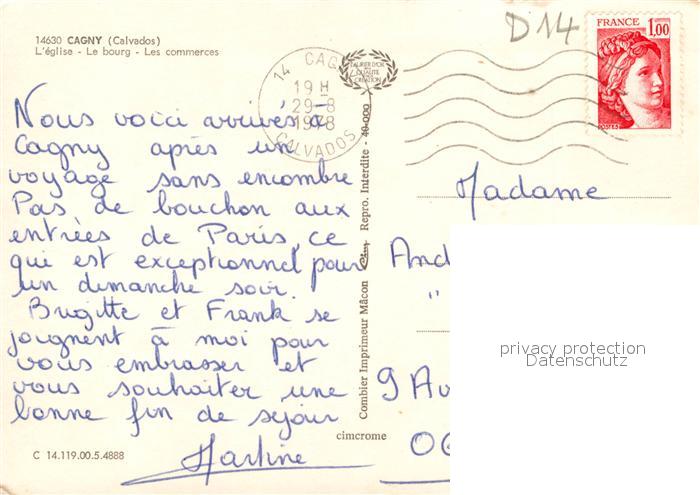 14630 CAGNY (Calvados)
L'église - Le bourg - Les commerces
D14
FRANCE 1,00
POSTES
14 CAGNY
19 H
29-8
1978
CALVADOS
LAURIER D'OR
DE LA
QUALITÉ
CRÉATION
Nous voici arrivés à
Cagny après un
voyage sans encombre
Pas de bouchon aux
entrées de Paris, ce
qui est exceptionnel pour
un dimanche soir.
Brigitte et Frank se
joignent à moi pour
vous embrasser et
vous souhaiter une
bonne fin de séjour
Martine
C 14.119.00.5.4888
Combier Imprimeur Mâcon Repro. Interdite - 40-000
cimcrome
Madame
And
"
9 Av
06
privacy protection
Datenschutz